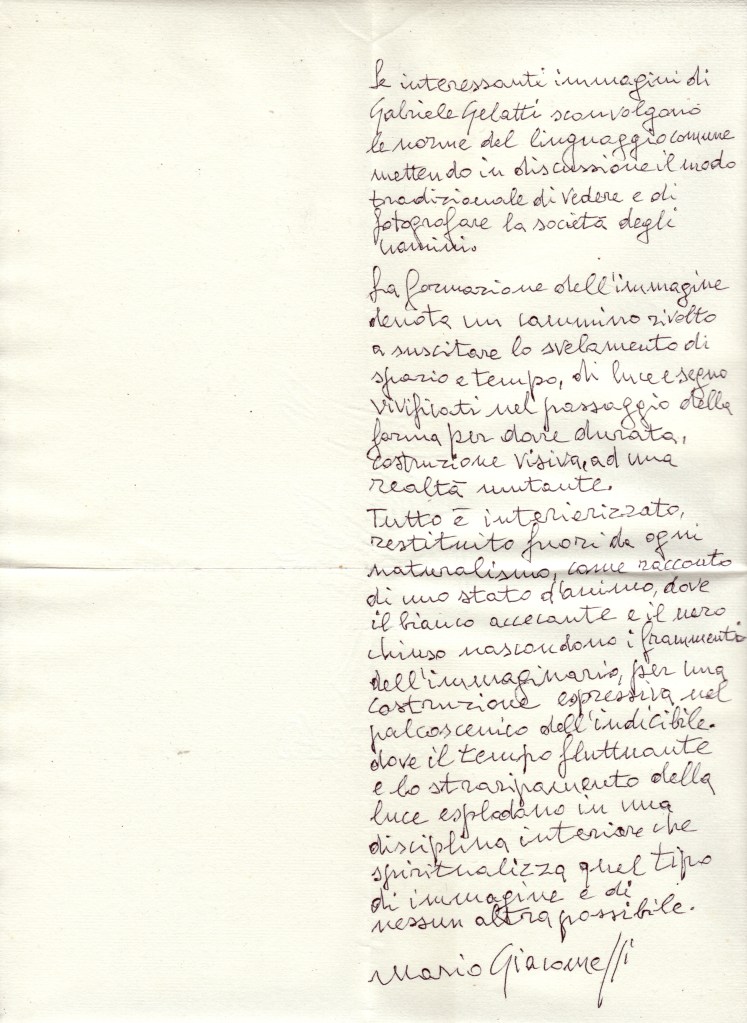 Le interessanti immagini di
Gabriele Gelatti sconvolgono
le norme del linguaggio comune
mettendo in discussione il modo
tradizionale di vedere e di
fotografare la società degli
uomini.
La formazione dell'immagine
denota un cammino rivolto
a suscitare lo svelamento di
spazio e tempo, di luce e segno
vivificati nel passaggio della
forma per dare durata,
costruzione visiva, ad una
realtà mutante.
Tutto è interierizzato,
restituito fuori da ogni
naturalismo, come racconto
di uno stato d'animo, dove
il bianco accecante e il nero
chiuso nascondono i frammenti
dell'immaginario, per una
costruzione espressiva nel
palcoscenico dell'indicibile.
dove il tempo fluttuante
e lo straripamento della
luce esplodano in una
disciplina interiore che
spiritualizza quel tipo
di immagine e di
nessun altra possibile.
Mario Giacomelli